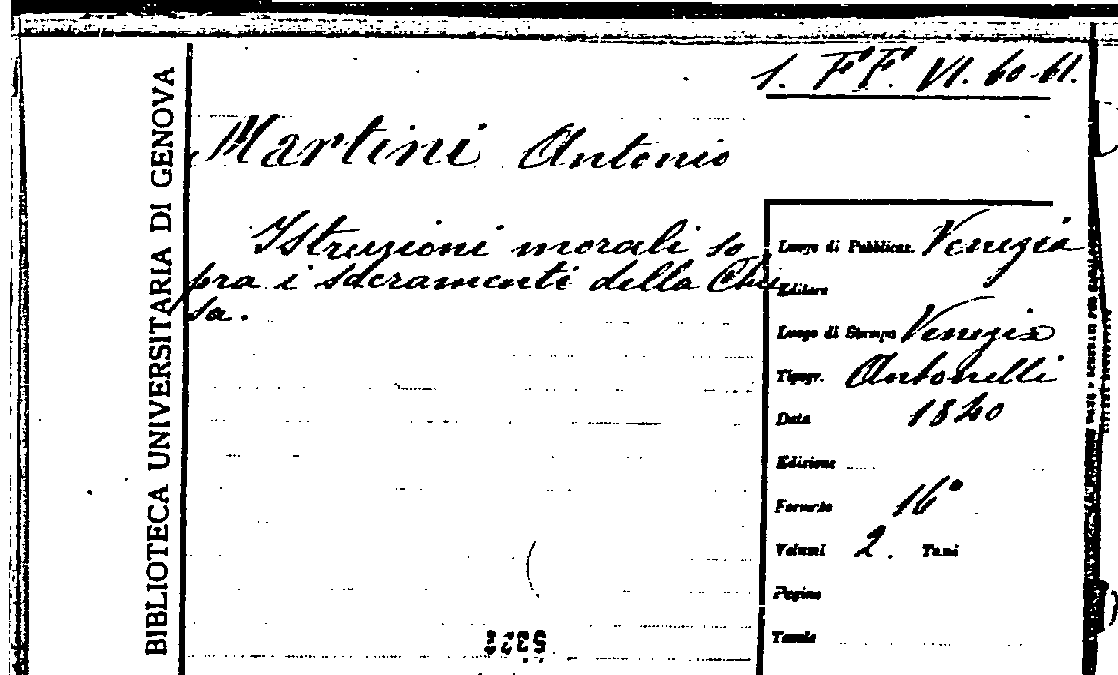 1. F.F. VI. 60-61.
BIBLIOTECA UNIVERSITARIA DI GENOVA
Martini Antonio
Istruzioni morali so
pra i sacramenti della Chie
sa.
Luogo di Pubblicaz. Venezia
Editore
Luogo di Stampa Venezia
Tipogr. Antonelli
Data 1840
Edizione
Formato 16°
Volumi 2. Tomi
Pagine
Tavole